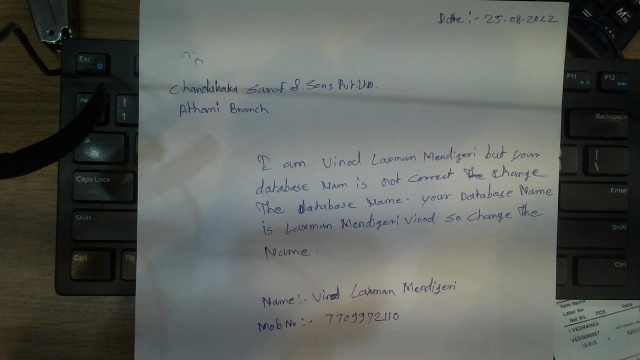 Date :- 25.08.2022
To
Chandukaka Saraf & Sons Pvt Ltd.
Athani Branch
I am. Vinod Laxman Mendigeri but your
database Nam is not correct The change
The database Name. your Database Name
is Laxman Mendigeri Vinod so change the
Name.
Name:- Vinod Laxman Mendigeri
Mob No :- 7709972110
Esc
F11
F12
Backspace
Caps Lock
Enter
Shift
Shift
Ctrl
Ctrl
Item Name
Label No
Net Wt. PCS